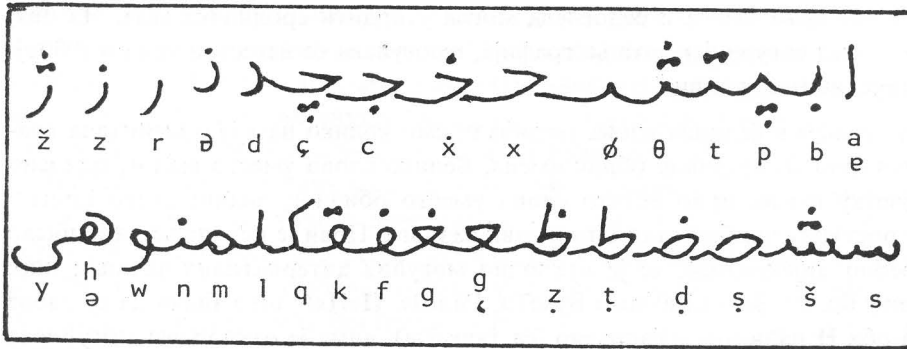 ا بپتثحخجچد ذ ر ز ژ
ž z r ∂ d ç c ẋ x ø θ t p b a
ɐ
سشصضطظعغفقکلمنو هی
h
y w n m l q k f g ƍ ẓ ṭ ḍ ṣ š s
ə